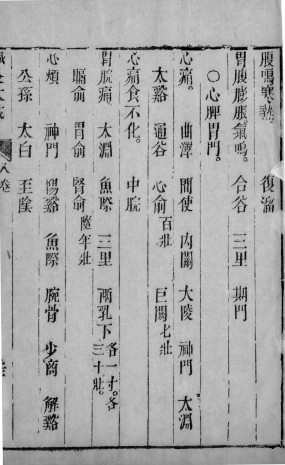 腹鳴寒熱。復溜
胃腹膨脹氣鳴。合谷 三里 期門
○心脾胃門。
心痛。曲澤 間使 內關 大陵 神門 太淵
太谿 通谷 心俞百壯 巨闕七壯
心痛食不化。中脘
胃脘痛 太淵 魚際 三里 兩乳下各一寸。各三十壯。
膈俞 胃俞 腎俞隨年壯
心煩 神門 陽谿 魚際 腕骨 少商 解谿
公孫 太白 至陰
大成 八卷